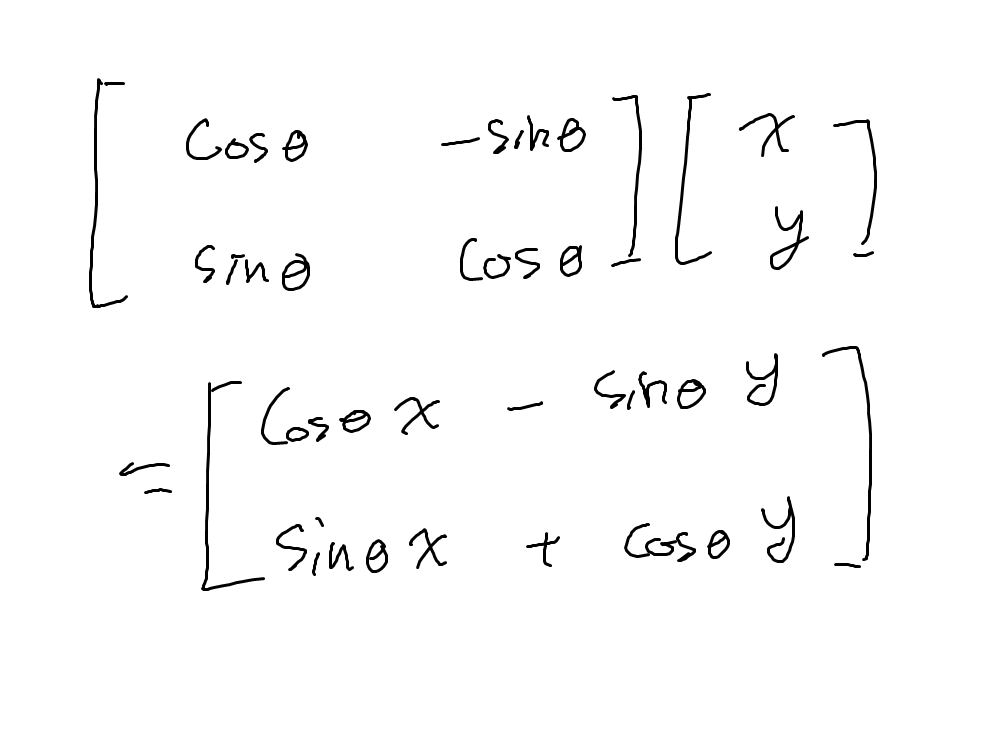 [ cosθ -sinθ ] [ x ]
[ sinθ cosθ ] [ y ]
= [ cosθ x - sinθ y ]
[ sinθ x + cosθ y ]